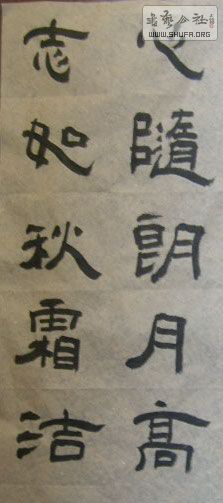 心隨朗月高
志如秋霜潔
WWW.SHUFA.ORG